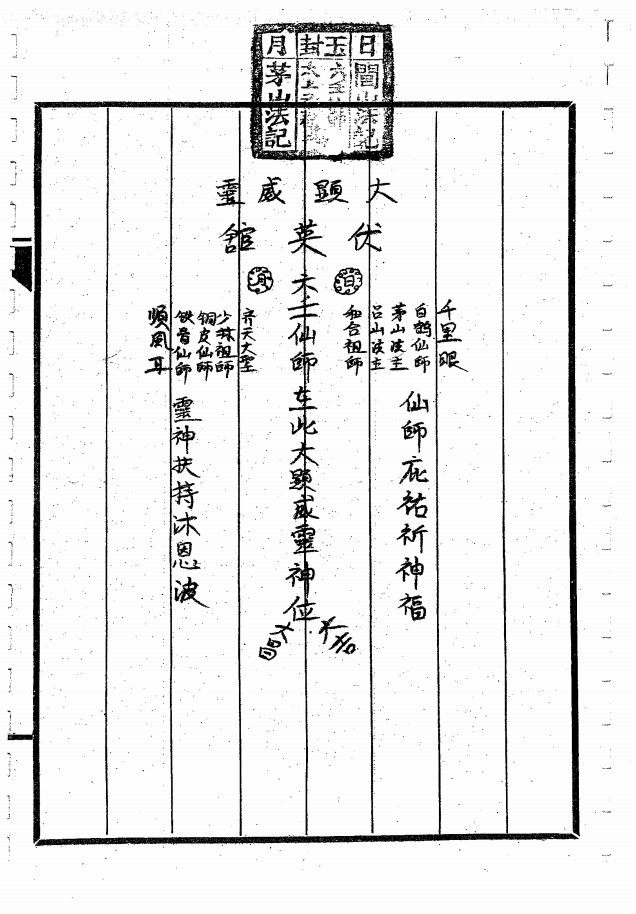 日閭山法記
玉六壬仙師
封太上老君
月茅山法記
大顯威靈
伏英館
日
月
千里眼
白鶴仙師
茅山法主
呂山法主
和合祖師
仙師庇祐祈神福
六壬仙師在此大顯威靈神位
齐天大聖
少林祖師
铜皮仙師
铁骨仙師
順風耳
靈神扶持沐恩波